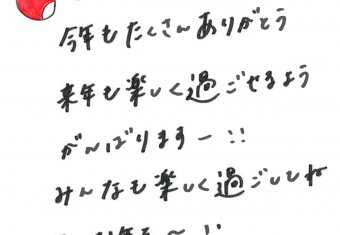 今年もたくさんありがとう
来年も楽しく過ごせるよう
がんばりますー!!
みんなも楽しく過ごしてね